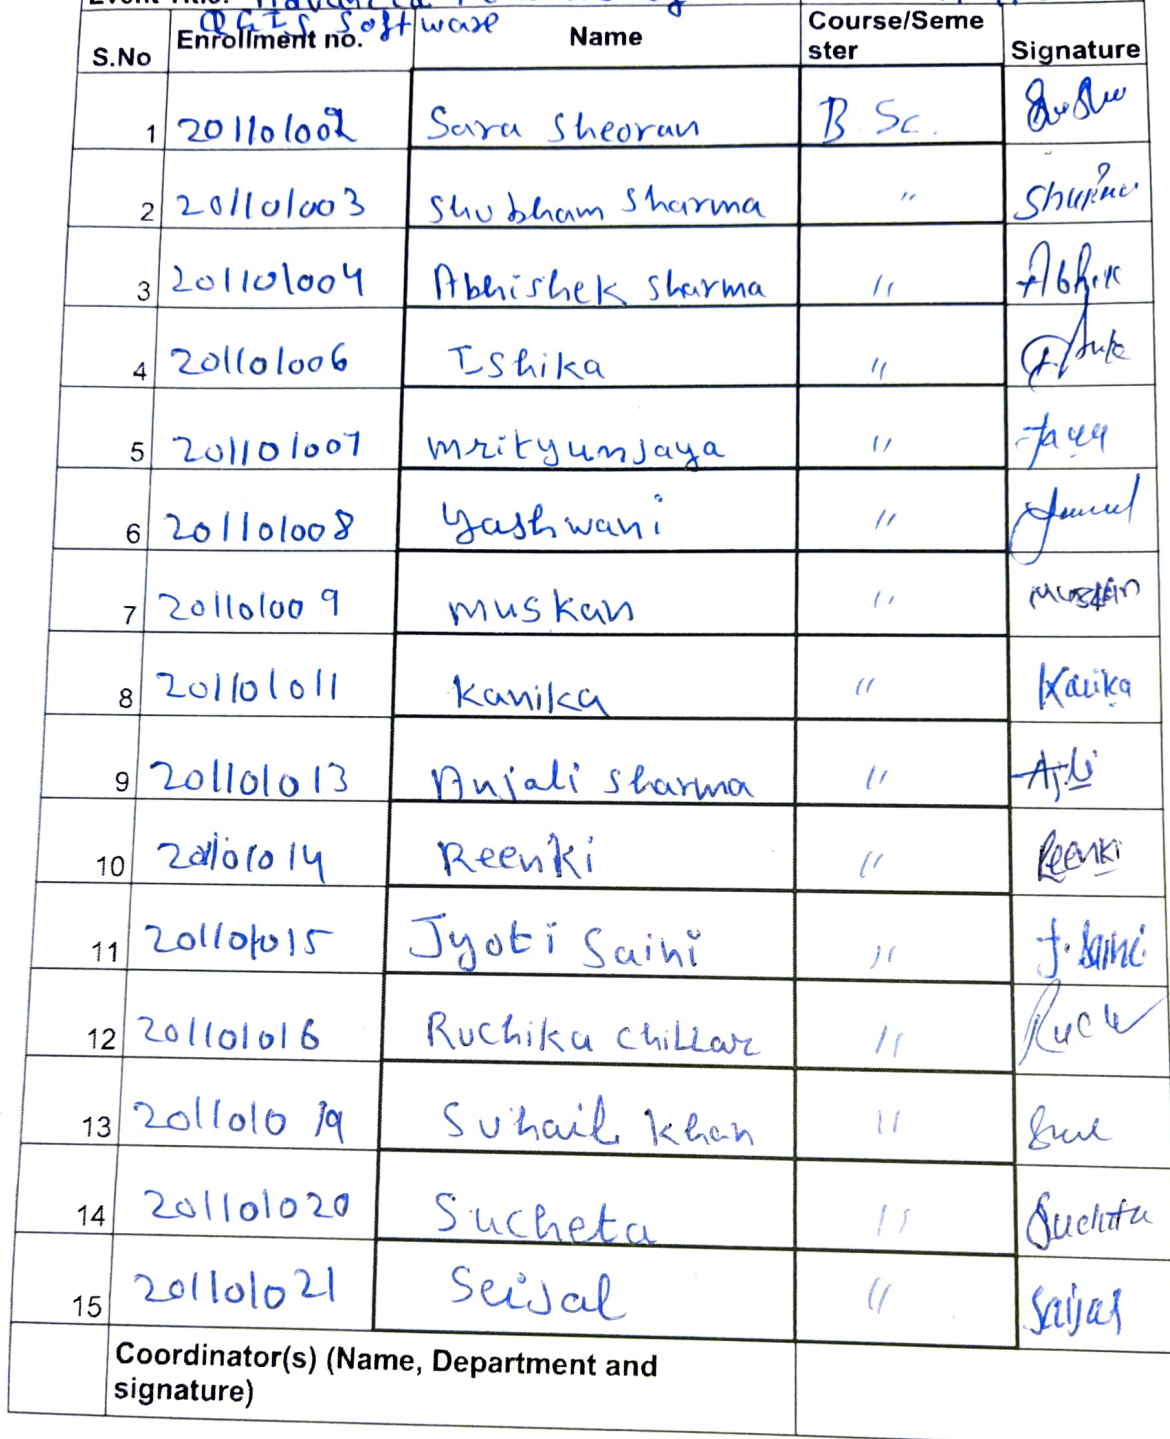 QGIS Software
S.No Enrollment no. Name Course/Seme
ster Signature
1 201101002 Sara Sheoran B Sc.
2 201101003 Shubham Sharma "
3 201101004 Abhishek Sharma "
4 201101006 Ishika "
5 201101007 Mrityunjaya " Jaya
6 201101008 Yashwani "
7 201101009 Muskan " Muskan
8 201101011 Kanika " Kanika
9 201101013 Anjali Sharma "
10 201101014 Reenki " Reenki
11 201101015 Jyoti Saini " J. Saini
12 201101016 Ruchika Chillar "
13 201101019 Suhail Khan "
14 201101020 Sucheta " Sucheta
15 201101021 Seijal " Saijal
Coordinator(s) (Name, Department and
signature)